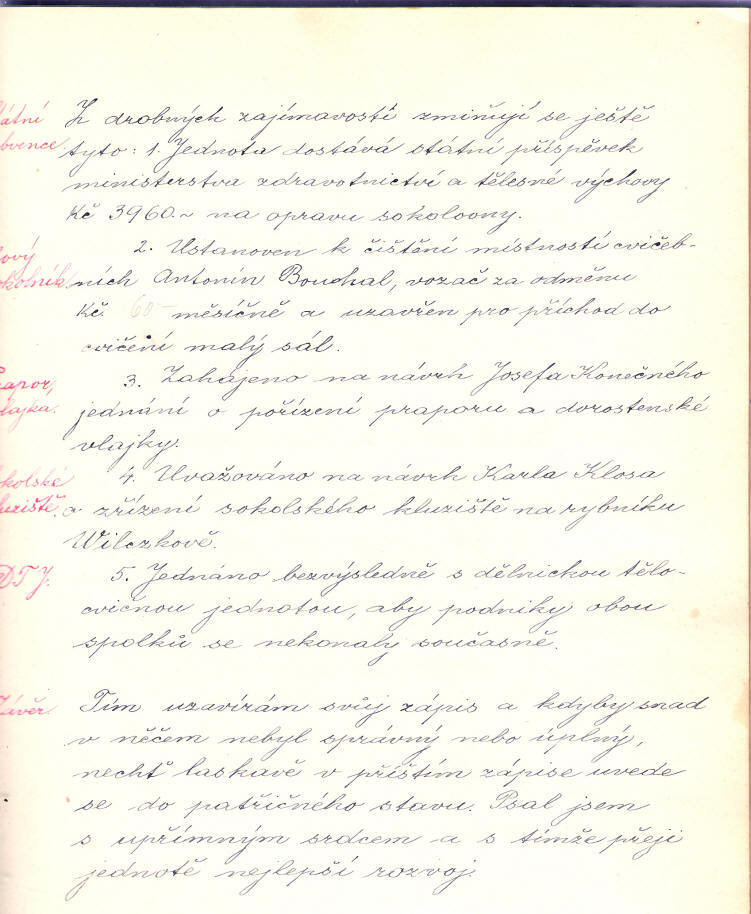 Z drobných zajímavostí zmiňuji se ještě
tyto: 1. Jednota dostává státní příspěvek
ministerstva zdravotnictví a tělesné výchovy
Kč 3960.~ na opravu sokolovny.
2. Ustanoven k čištění místností cvičeb-
ních Antonín Bouchal, vozač za odměnu
Kč. 60 měsíčně a uzavřen pro příchod do
cvičení malý sál.
3. Zahájeno na návrh Josefa Konečného
jednání o pořízení praporu a dorostenské
vlajky.
4. Uvažováno na návrh Karla Klosa
o zřízení sokolského kluziště na rybníku
Wilczkově.
DTJ.
5. Jednáno bezvýsledně s dělnickou tělo-
cvičnou jednotou, aby podniky obou
spolků se nekonaly současně.
Závěr.
Tím uzavírám svůj zápis a kdyby snad
v něčem nebyl správný nebo úplný,
nechť laskavě v příštím zápise uvede
se do patřičného stavu. Psal jsem
s upřímným srdcem a s tímže přeji
jednotě nejlepší rozvoj.